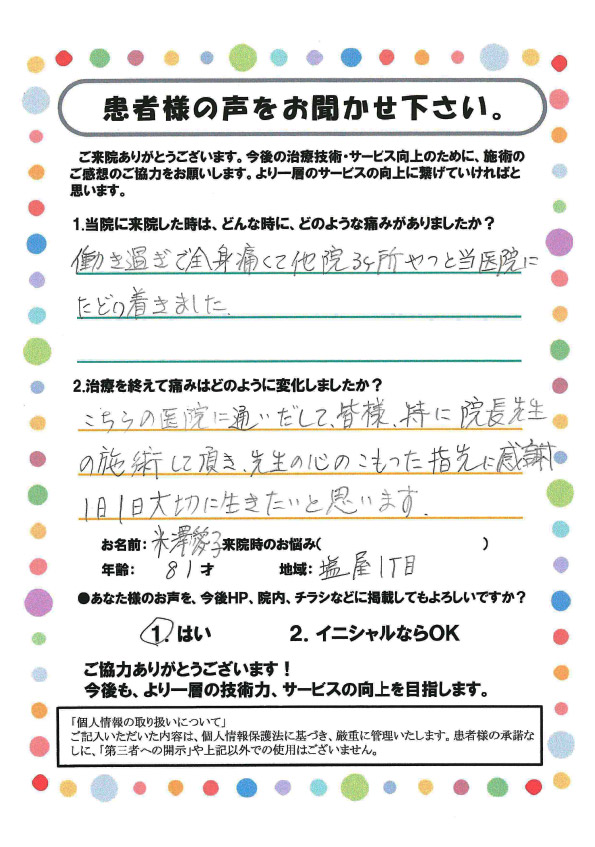 患者様の声をお聞かせ下さい。
ご来院ありがとうございます。今後の治療技術・サービス向上のために、施術の
ご感想のご協力をお願いします。より一層のサービスの向上に繋げていければと
思います。
1.当院に来院した時は、どんな時に、どのような痛みがありましたか？
働き過ぎで全身痛くて他院3ヶ所やっと当医院に
たどり着きました.
2.治療を終えて痛みはどのように変化しましたか？
こちらの医院に通いだして、皆様、特に院長先生
の施術して頂き、先生の心のこもった指先に感謝
1日1日大切に生きたいと思います.
お名前：米澤愛子 来院時のお悩み(　)
年齢：81才 地域：塩屋1丁目
●あなた様のお声を、今後HP、院内、チラシなどに掲載してもよろしいですか？
1. はい 2. イニシャルならOK
ご協力ありがとうございます！
今後も、より一層の技術力、サービスの向上を目指します。
「個人情報の取り扱いについて」
ご記入いただいた内容は、個人情報保護法に基づき、厳重に管理いたします。患者様の承諾な
しに、「第三者への開示」や上記以外での使用はございません。